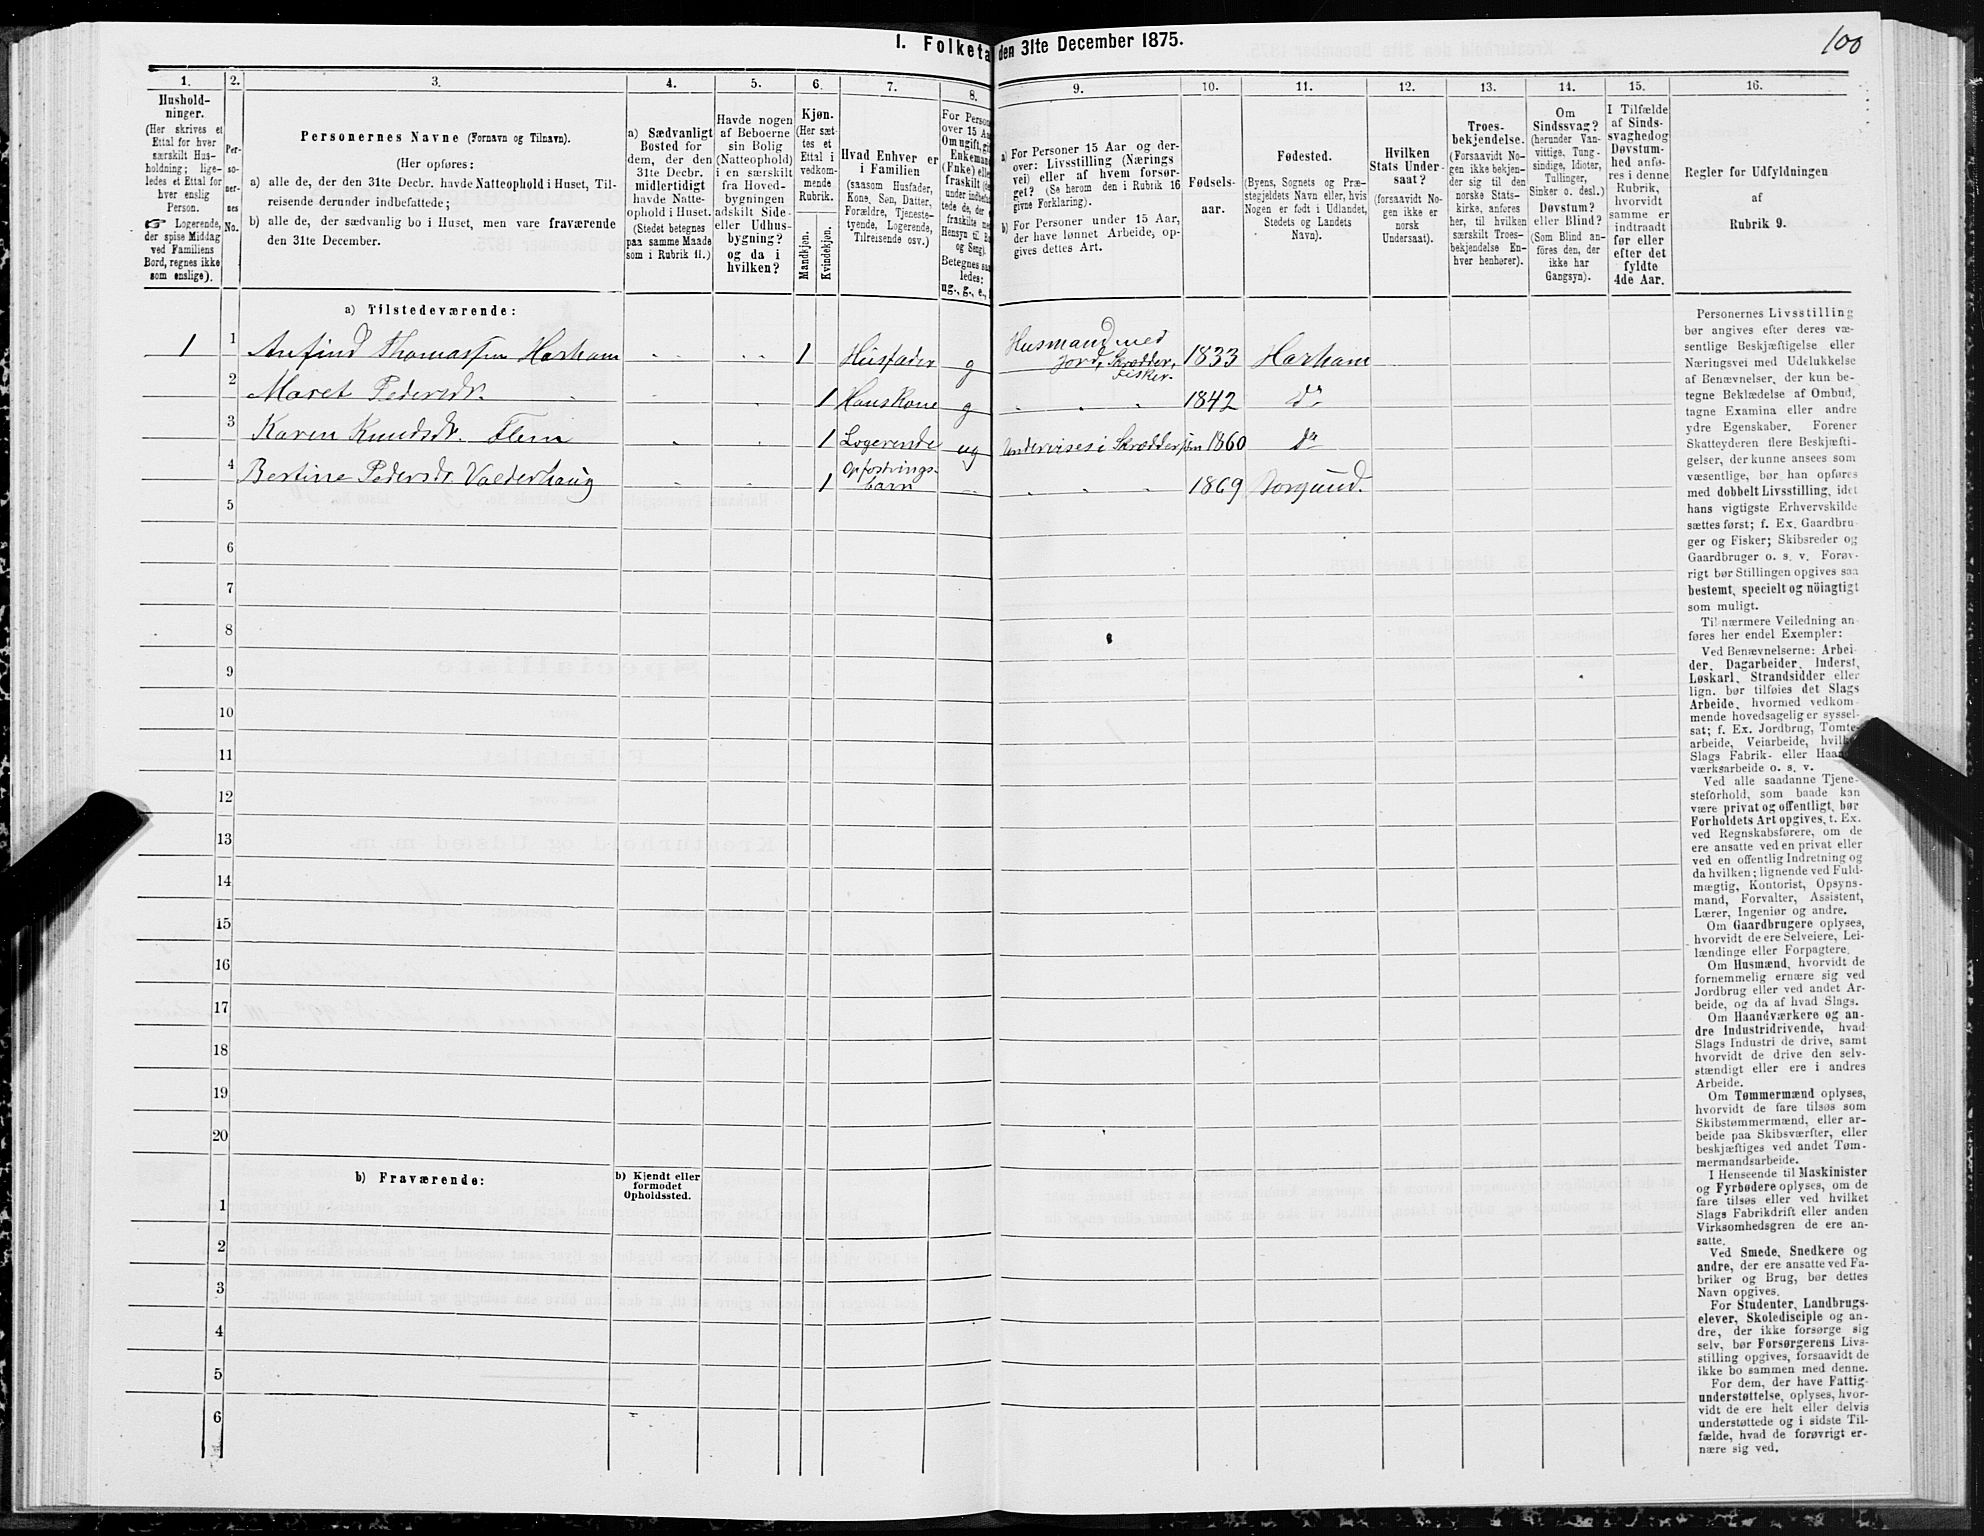 I. Folketa den 31te December 1875.
100
1. 2. 3. 4. 5. 6. 7. 8. 9. 10. 11. 12. 13. 14. 15. 16.
Hushold-
ninger.
(Her skrives et
Ettal for hver
særskilt Hus-
holdning; lige-
ledes et Ettal for
hver enslig
Person.
☞ Logerende,
der spise Middag
ved Familiens
Bord, regnes ikke
som enslige).
Per-
so-
ner-
nes
No.
Personernes Navne (Fornavn og Tilnavn).
(Her opføres:
a) alle de, der den 31te Decbr. havde Natteophold i Huset, Til-
reisende derunder indbefattede;
b) alle de, der sædvanlig bo i Huset, men vare fraværende
den 31te December.
a) Sædvanligt
Bosted for
dem, der den
31te Decbr.
midlertidigt
havde Natte-
ophold i Huset.
(Stedet betegnes
paa samme Maade
som i Rubrik 11.)
Havde nogen
af Beboerne
sin Bolig
(Natteophold)
i en særskilt
fra Hoved-
bygningen
adskilt Side-
eller Udhus-
bygning?
og da i
hvilken?
Kjøn.
(Her sæt-
tes et
Ettal i
vedkom-
mende
Rubrik.
Mandkjøn.
Kvindekjøn.
Hvad Enhver er
i Familien
(saasom Husfader,
Kone, Søn, Datter,
Forældre, Tjeneste-
tyende, Logerende,
Tilreisende osv.)
For Person
over 15 Aa
Om ugift, gi
Enkemand
(Enke) elle
fraskilt (de
under indbefa
tede de, der e
fraskilte med
Hensyn til Bo
og Seng).
Betegnes saa
ledes:
ug., g., e., f
a) For Personer 15 Aar og der-
over: Livsstilling (Nærings
vei) eller af hvem forsør-
get? (Se herom den i Rubrik 16
givne Forklaring).
b) For Personer under 15 Aar,
der have lønnet Arbeide, op-
gives dettes Art.
Fødsels-
aar.
Fødested.
(Byens, Sognets og Præ-
stegjeldets Navn eller, hvis
Nogen er født i Udlandet,
Stedets og Landets
Navn).
Hvilken
Stats Under-
saat?
(forsaavidt No-
gen ikke er
norsk
Undersaat).
Troes-
bekjendelse.
(Forsaavidt No-
gen ikke bekjen-
der sig til den
norske Stats-
kirke, anføres
her, til hvilken
særskilt Troes-
bekjendelse En-
hver henhører).
Om
Sindssvag?
(herunder Van-
vittige, Tung-
sindige, Idioter,
Tullinger,
Sinker o. desl.)
Døvstum?
eller Blind?
(Som Blind an-
føres den, der
ikke har
Gangsyn).
I Tilfælde
af Sinds-
svaghed og
Døvstum-
hed anfø-
res i denne
Rubrik,
hvorvidt
samme er
indtraadt
før eller
efter det
fyldte
4de Aar.
Regler for Udfyldningen
af
Rubrik 9.
a) Tilstedeværende:
1 1 Anfind Thomassen Harham 1 Husfader g Husmand med Jord, Skrædder, Fisker. 1833 Harham
2 Maret Pedersdr. 1 Hans Kone g 1842 Do
3 Karen Knudsdr. Flem 1 Logerende ug Undervises i Skrædders̄øm 1860 Do
4 Bertine Pedersdr Valderhaug 1 Opfostrings- barn 1869 Borgund.
5
6
7
8
9
10
11
12
13
14
15
16
17
18
19
20
b) Fraværende:
b) Kjendt eller
formodet
Opholdssted.
1
2
3
4
5
6
Personernes Livsstilling
bør angives efter deres væ-
sentlige Beskjæftigelse eller
Næringsvei med Udelukkelse
af Benævnelser, der kun be-
tegne Beklædelse af Ombud,
tagne Examina eller andre
ydre Egenskaber. Forener
Skatteyderen flere Beskjæfti-
gelser, der kunne ansees som
væsentlige, bør han opføres
med dobbelt Livsstilling, idet
hans vigtigste Erhvervskilde
sættes først; f. Ex. Gaardbru-
ger og Fisker; Skibsreder og
Gaardbruger o. s. v. Forøv-
rigt bør Stillingen opgives saa
bestemt, specielt og nöiagtigt
som muligt.
Til nærmere Veiledning an-
føres her endel Exempler:
Ved Benævnelserne: Arbei-
der, Dagarbeider, Inderst,
Løskarl, Strandsidder eller
lign. bør tilføies det Slags
Arbeide, hvormed vedkom-
mende hovedsagelig er syssel-
sat; f. Ex. Jordbrug, Tomte-
arbeide, Veiarbeide, hvilke
Slags Fabrik- eller Haand-
værksarbeide o. s. v.
Ved alle saadanne Tjene-
steforhold, som baade kan
være privat og offentligt, bør
Forholdets Art opgives, t. Ex.
ved Regnskabsførere, om de
ere ansatte ved en privat eller
ved en offentlig Indretning og
da hvilken; lignende ved Fuld-
mægtig, Kontorist, Opsyns-
mand, Forvalter, Assistent,
Lærer, Ingeniør og andre.
Om Gaardbrugere oplyses,
hvorvidt de ere Selveiere, Lei-
lændinge eller Forpagtere.
Om Husmænd, hvorvidt de
fornemmelig ernære sig ved
Jordbrug eller ved andet Ar-
beide, og da af hvad Slags.
Om Haandværkere og an-
dre Industridrivende, hvad
Slags Industri de drive, samt
hvorvidt de drive den selv-
stændigt eller ere i andres
Arbeide.
Om Tømmermænd oplyses,
hvorvidt de fare tilsøs som
Skibstømmermænd, eller ar-
beide paa Skibsværfter, eller
beskjæftiges ved andet Tøm-
mermandsarbeide.
I Henseende til Maskinister
og Fyrbødere oplyses, om de
fare tilsøs eller ved hvilket
Slags Fabrikdrift eller anden
Virksomhedsgren de ere an-
satte.
Ved Smede, Snedkere og
andre, der ere ansatte ved Fa-
briker og Brug, bør dettes
Navn opgives.
For Studenter, Landbrugs-
elever, Skoledisciple og an-
dre, der ikke forsørge sig
selv, bør Forsørgerens Livs-
stilling opgives, forsaavidt de
ikke bo sammen med denne.
For dem, der have Fattig-
understøttelse, oplyses, hvor-
vidt de ere helt eller delvis
understøttede og i sidste Til-
fælde, hvad de forøvrigt er-
nære sig ved.